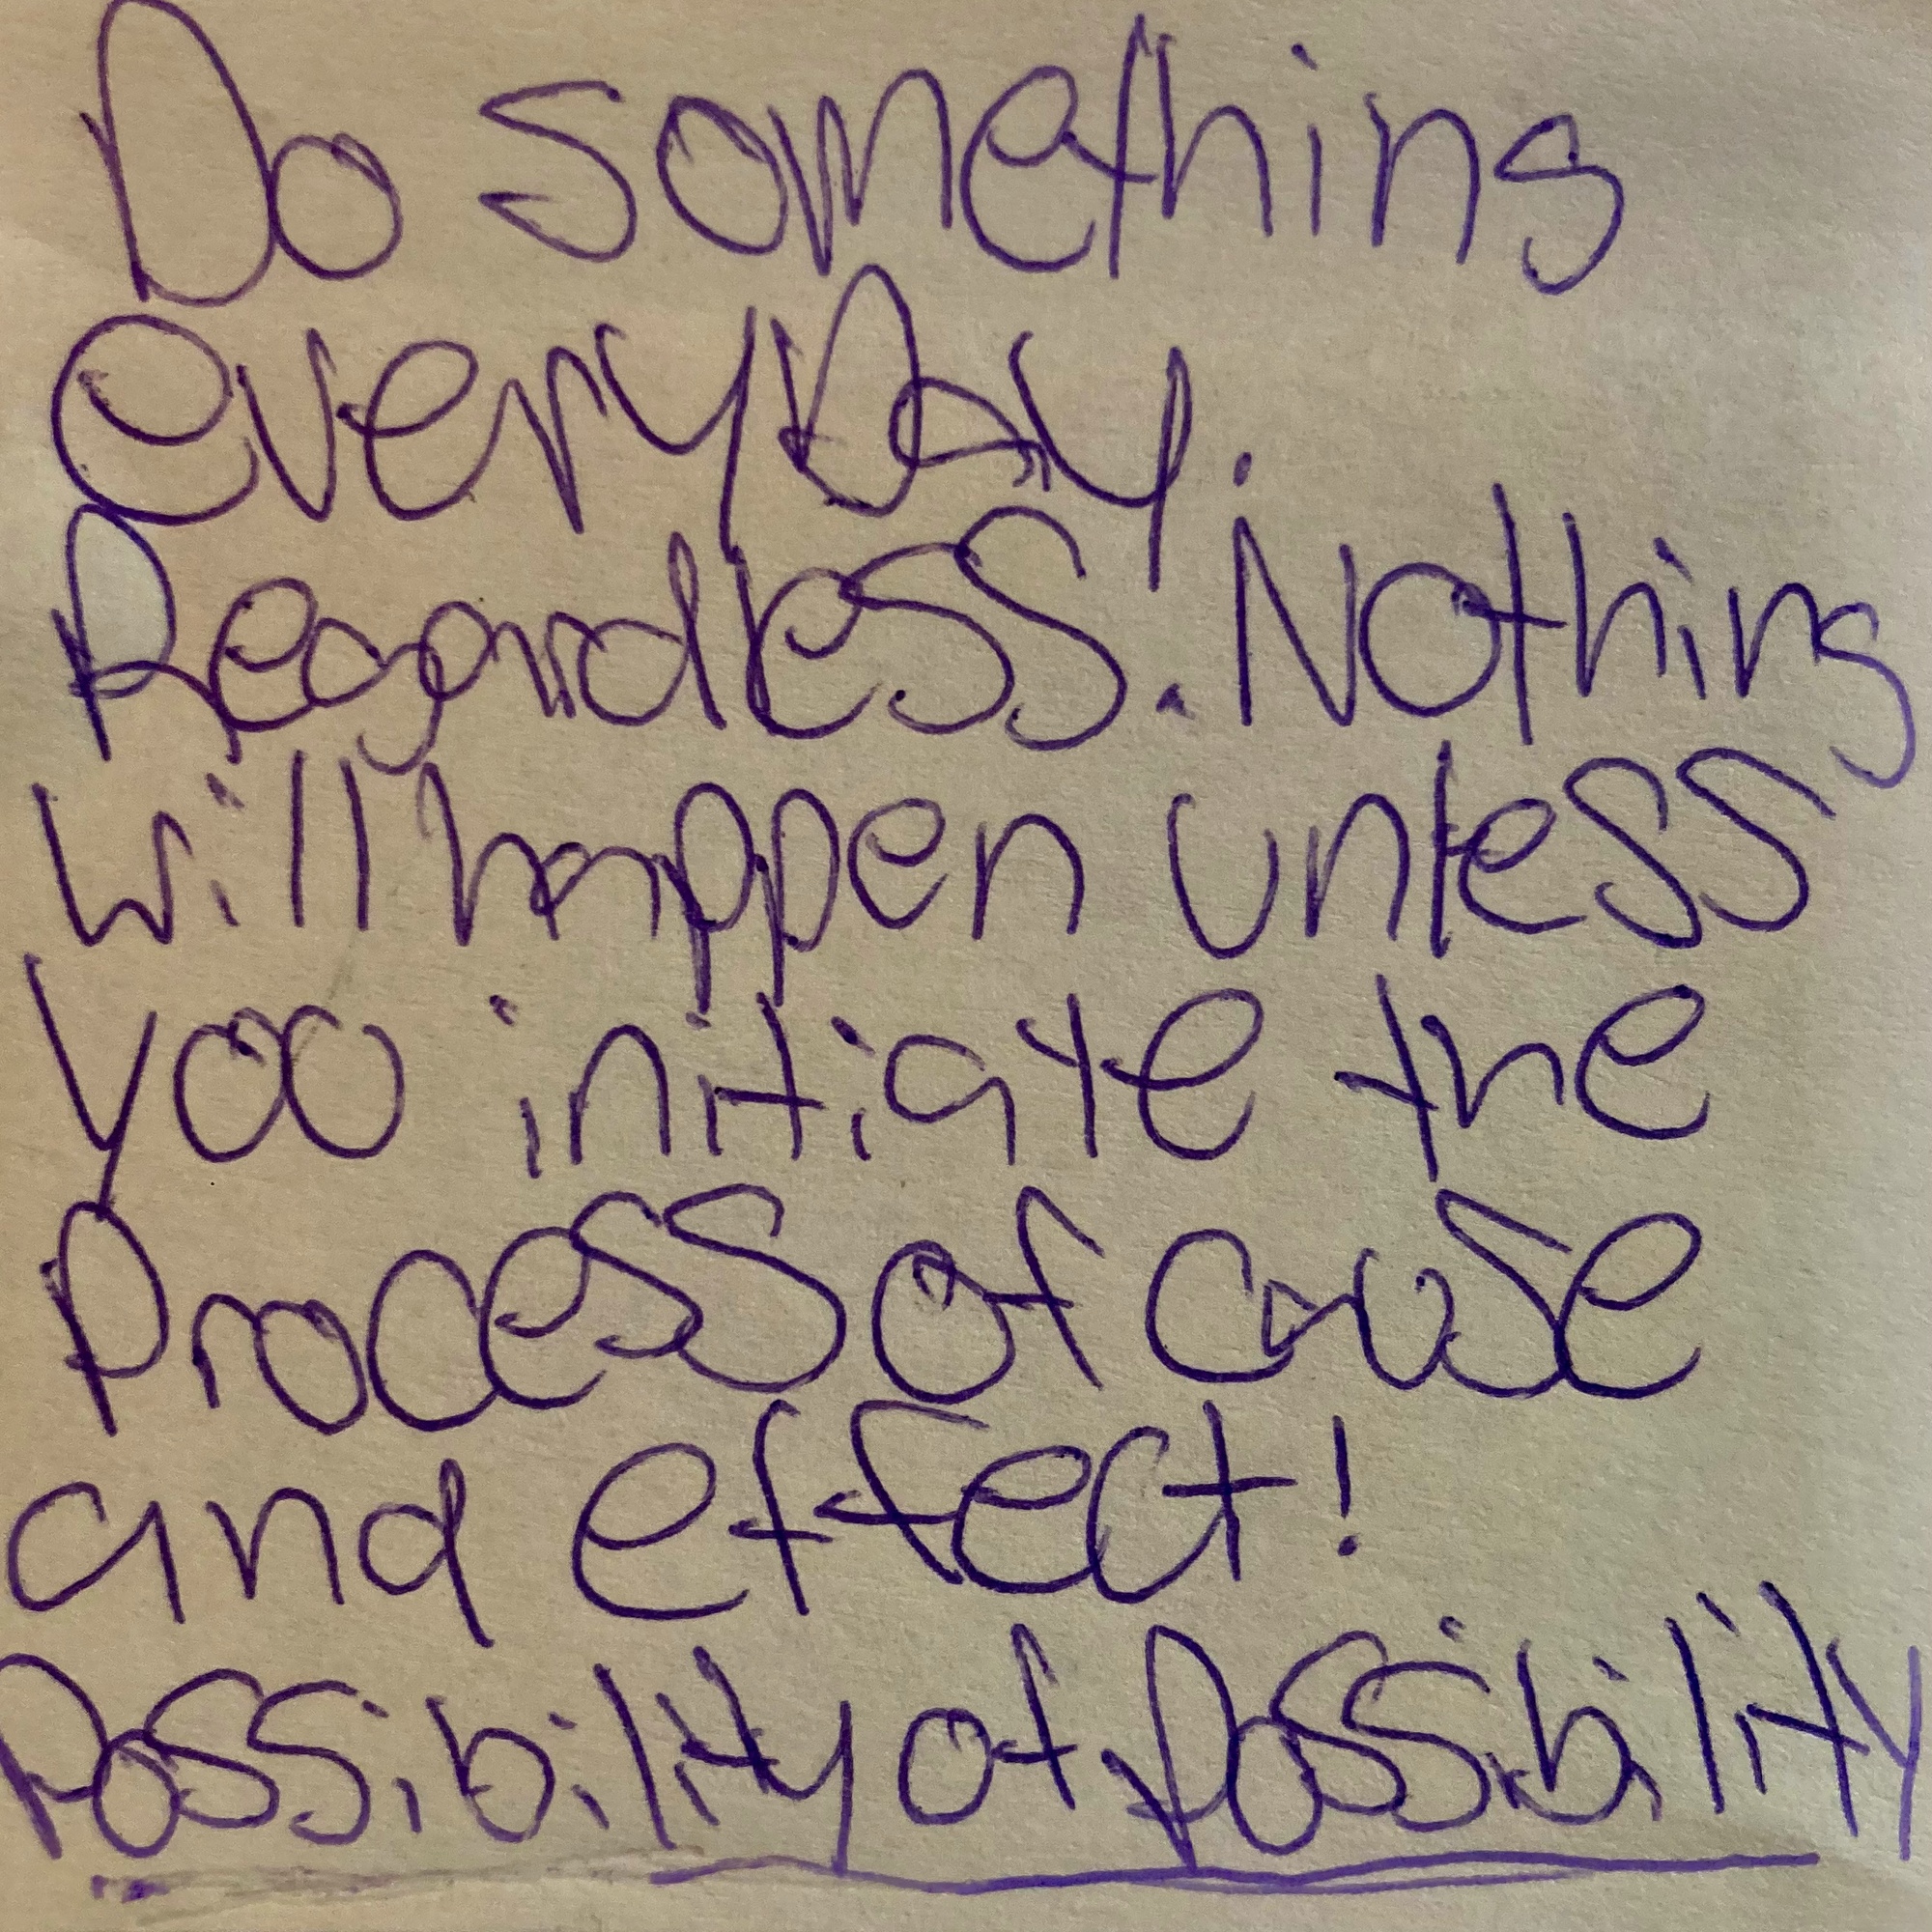 Do something
everyDay.
Regardless. Nothing
will happen unless
you initiate the
Process of cause
and effect!
Possibility of Possibility